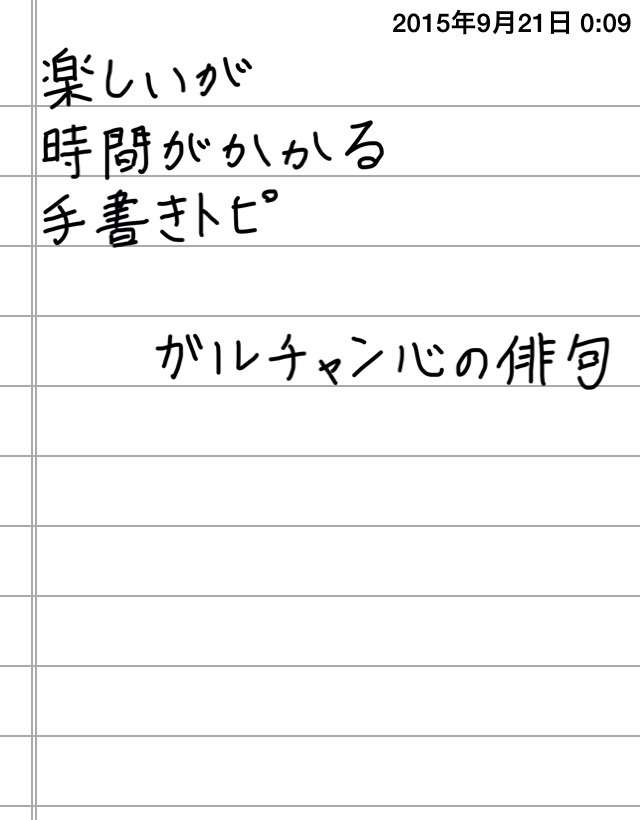 2015年9月21日 0:09
楽しいが
時間がかかる
手書きトピ
ガルチャン心の俳句